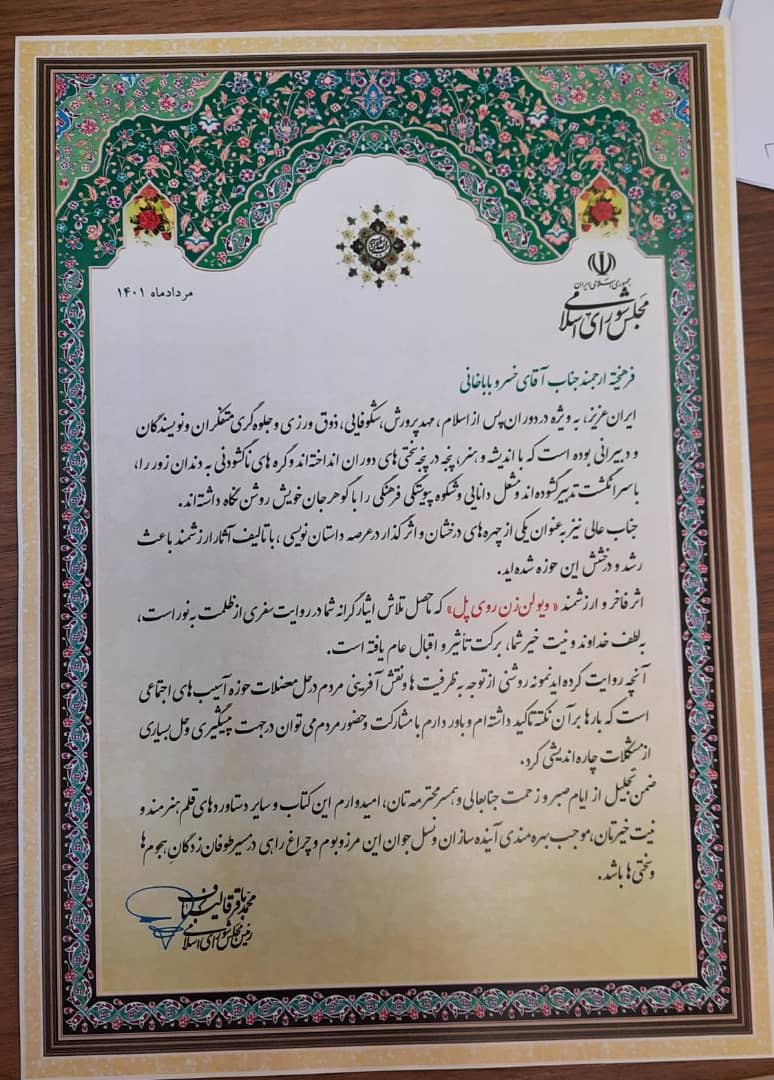 جمهوری اسلامی ایران
مجلس شورای اسلامی
مردادماه ۱۴۰۱
فرهیخته ارجمند جناب آقای خسرو باباخانی
ایران عزیز، به ویژه در دوران پس از اسلام، مهد پرورش، شکوفایی، ذوق ورزی و جلوه گری متفکران و نویسندگان
و دبیرانی بوده است که با اندیشه و هنر، پنجه در پنجه سختی های دوران انداخته اند و گره های ناگشودنی به دندان زور را،
با سر انگشت تدبیر گشوده اند و مشعل دانایی و شکوه پیوستگی فرهنگی را با گوهر جان خویش روشن نگاه داشته اند.
جناب عالی نیز به عنوان یکی از چهره های درخشان و اثر گذار در عرصه داستان نویسی، با تالیف آثار ارزشمند باعث
رشد و درخشش این حوزه شده اید.
اثر فاخر و ارزشمند «ویولن زن روی پل» که ماحصل تلاش ایثارگرانه شما در روایت سفری از ظلمت به نور است،
به لطف خداوند و نیت خیر شما، برکت تأثیر و اقبال عام یافته است.
آنچه روایت کرده اید نمونه روشنی از توجه به ظرفیت ها و نقش آفرینی مردم در حل معضلات حوزه آسیب های اجتماعی
است که بارها بر آن نکته تاکید داشته ام و باور دارم با مشارکت و حضور مردم می توان در جهت پیشگیری و حل بسیاری
از مشکلات چاره اندیشی کرد.
ضمن تجلیل از ایام صبر و زحمت جنابعالی و همسر محترمه تان، امیدوارم این کتاب و سایر دستاوردهای قلم هنرمند و
نیت خیرتان، موجب بهره مندی آینده سازان و نسل جوان این مرز و بوم و چراغ راهی در مسیر طوفان زدگانِ هجوم ها
و سختی ها باشد.
محمدباقر قالیباف
رئیس مجلس شورای اسلامی